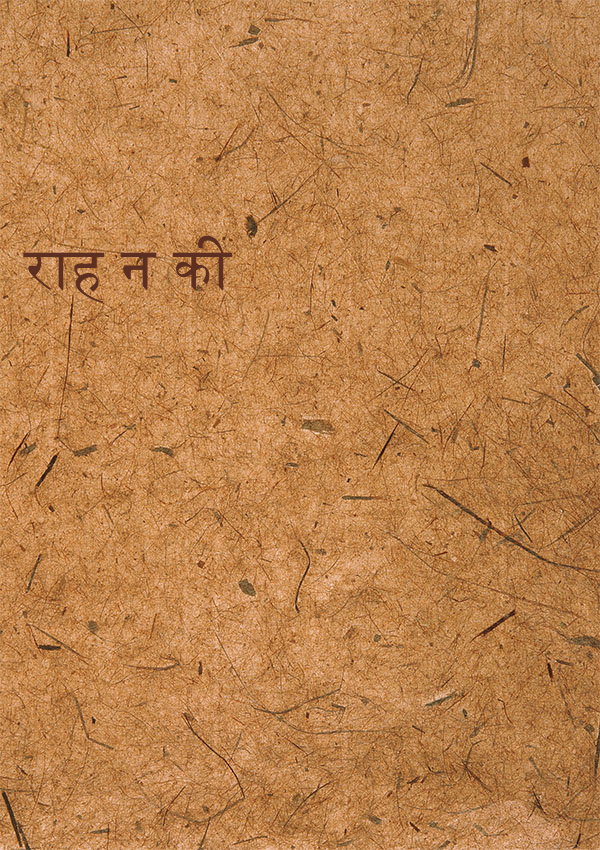 राह न की